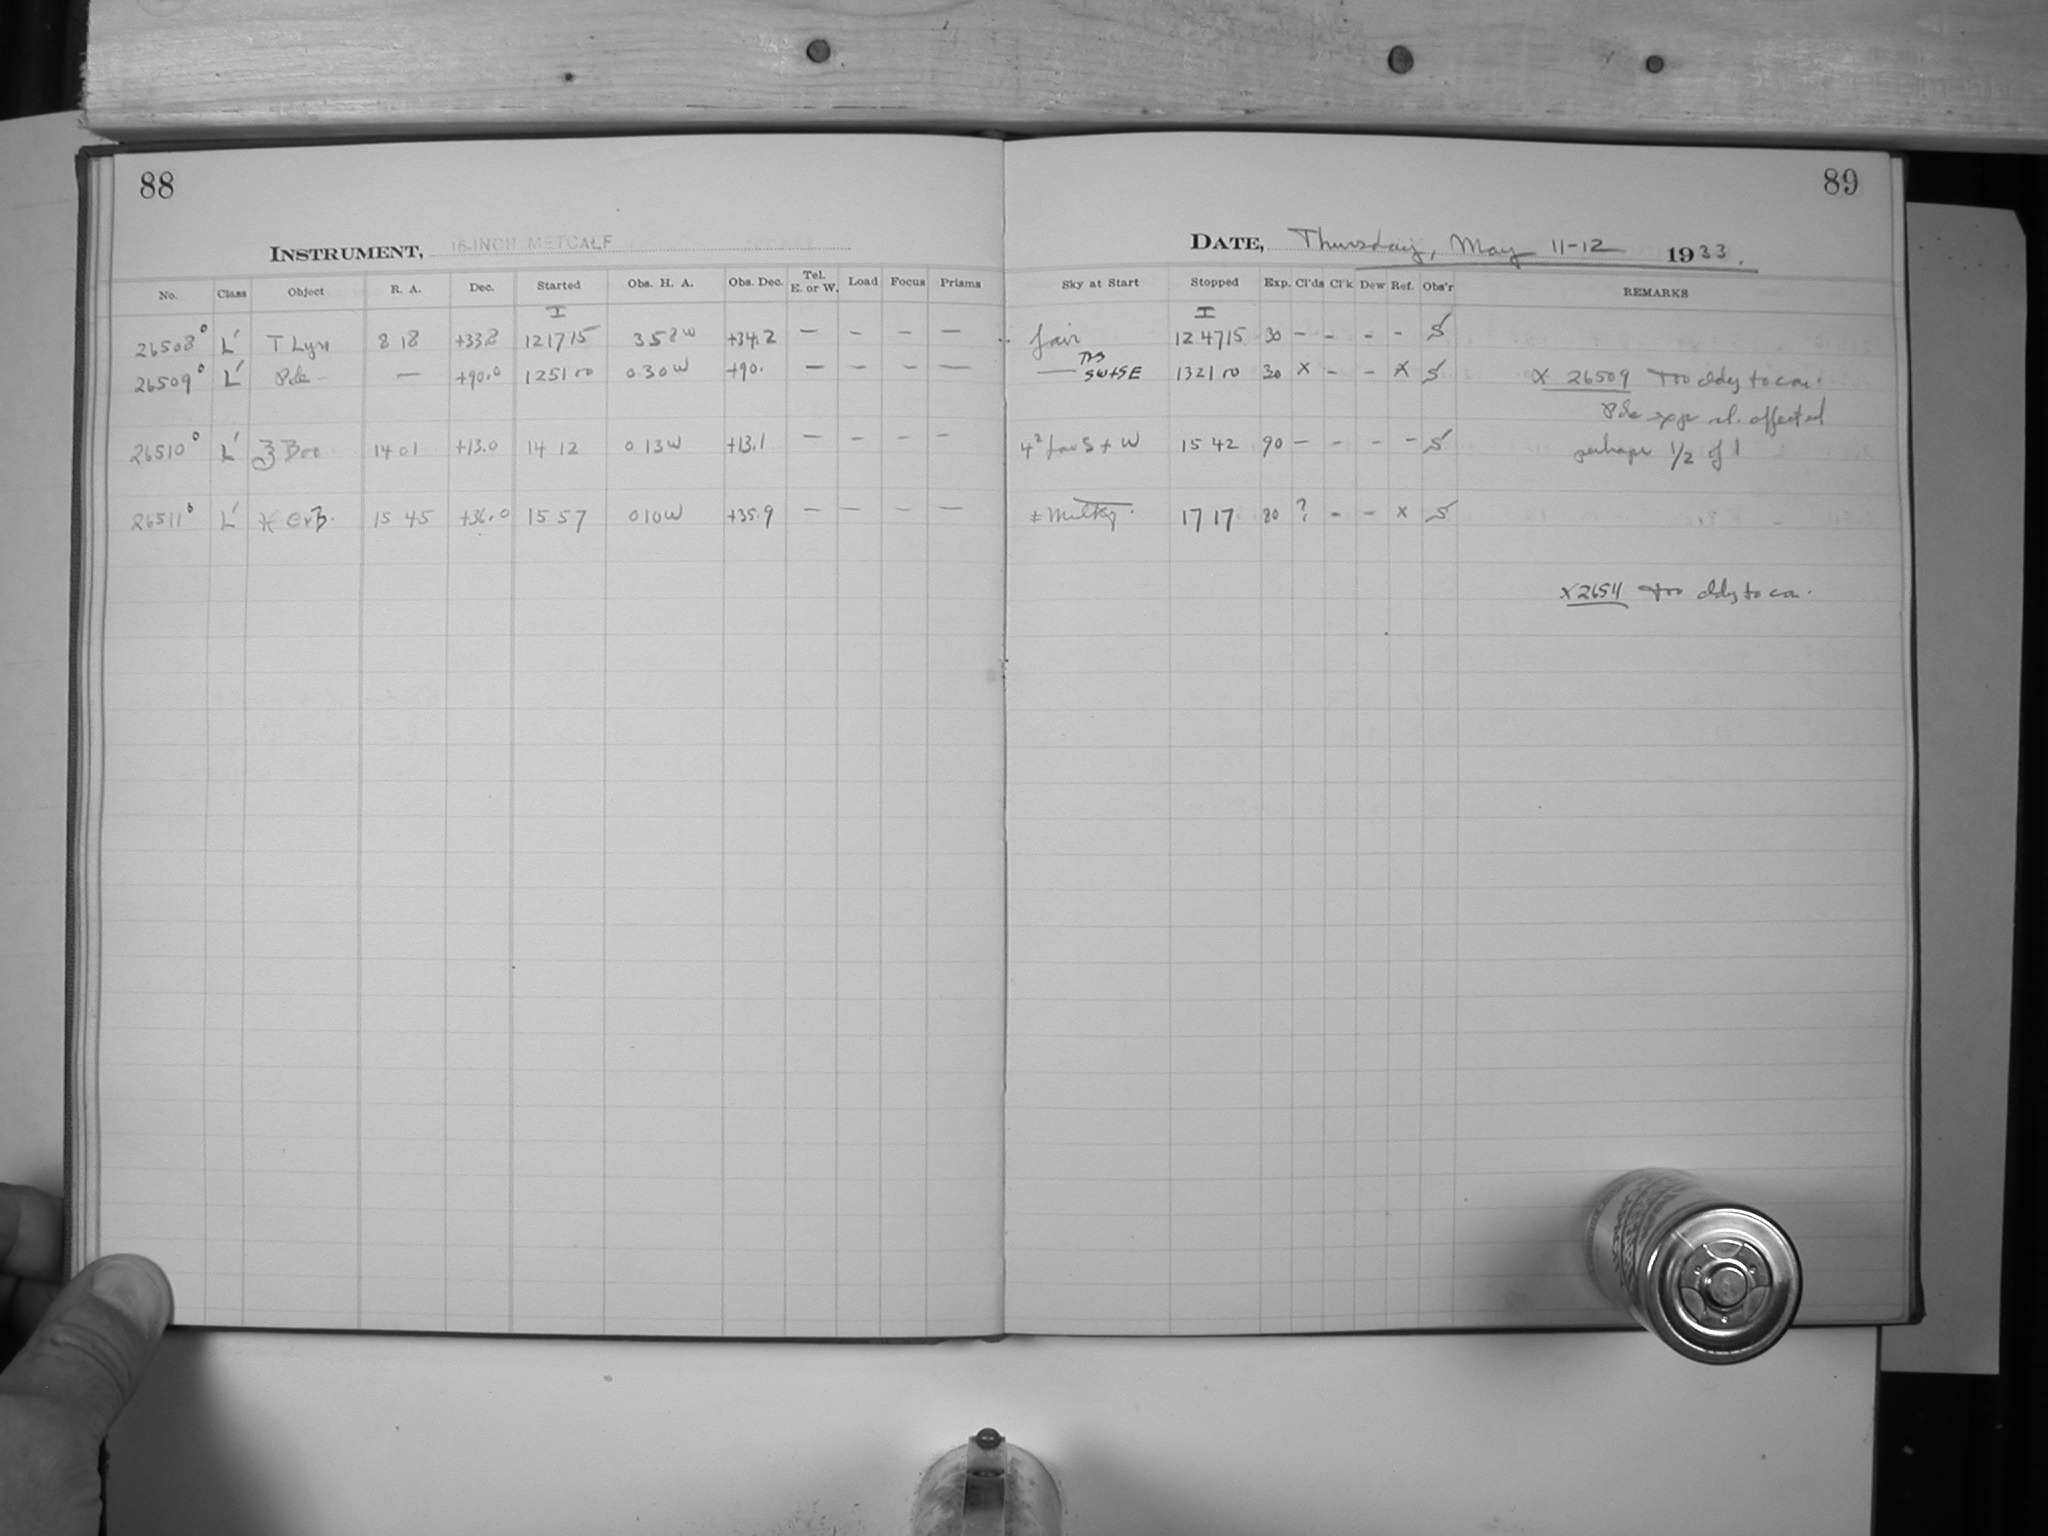 88
INSTRUMENT, 16-INCH METCALF
No. Class Object R. A. Dec. Started Obs. H. A. Obs. Dec. Tel. E. or W. Load Focus Prisms
I
26508° L' T Lyn 8 18 +33.8 12 17 15 3 58 W +34.2 — — — —
26509° L' Pole — +90.0 12 51 00 0 30 W +90. — — — —
26510° L' Boo 14 01 +13.0 14 12 0 13 W +13.1 — — — —
26511° L' CrB. 15 45 +36.0 15 57 0 10 W +35.9 — — — —
89
DATE, Thursday, May 11-12 1933.
Sky at Start Stopped Exp. Cl'ds Cl'k Dew Ref. Obs'r REMARKS
I
fair 12 47 15 30 – – – – S
SW+SE 13 21 00 30 X – – X S X 26509 Too cldy to con.
Pole exp. sl. affected
4² low S + W 15 42 90 – – – – S perhaps 1/2 of 1
± Milky. 17 17 80 ? – – X S
X 26511 Too cldy to con.